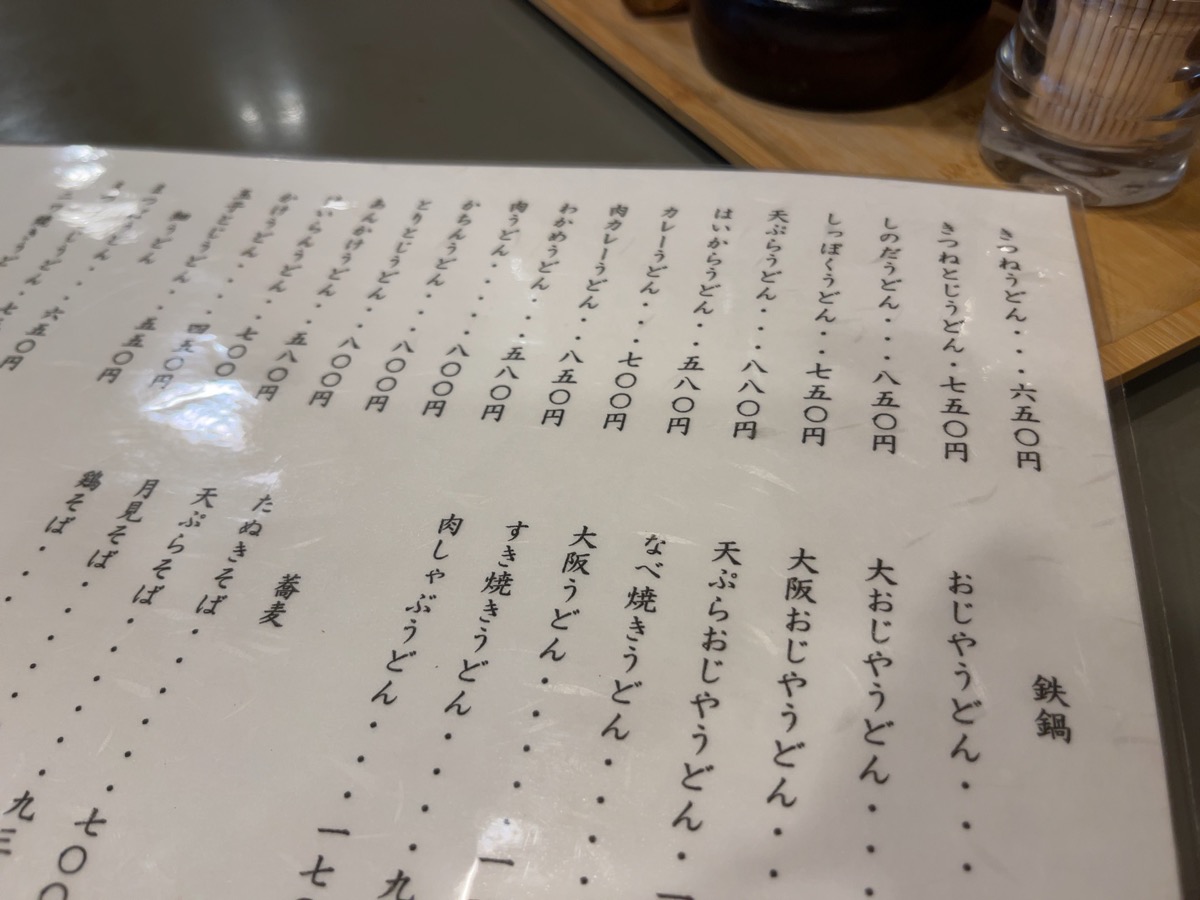 きつねうどん・・・六五〇円
きつねとじうどん・七五〇円
しのだうどん・・・八五〇円
しっぽくうどん・・七五〇円
天ぷらうどん・・・八八〇円
はいからうどん・・五八〇円
カレーうどん・・・七〇〇円
肉カレーうどん・・八五〇円
わかめうどん・・・五八〇円
肉うどん・・・・・八〇〇円
かちんうどん・・・八〇〇円
とりとじうどん・・八〇〇円
あんかけうどん・・五八〇円
いらんうどん・・七〇〇
かけうどん
とじうどん
鉄鍋
おじやうどん・・・
大おじやうどん・・・
大阪おじやうどん・・
天ぷらおじやうどん・
なべ焼きうどん・・・・
大阪うどん・・・・一
すき焼きうどん・・・・九
肉しゃぶうどん・・・・一七
蕎麦
たぬきそば・・
天ぷらそば・・・・・七〇〇
月見そば・・・・・
鶏そば・・・・・九三